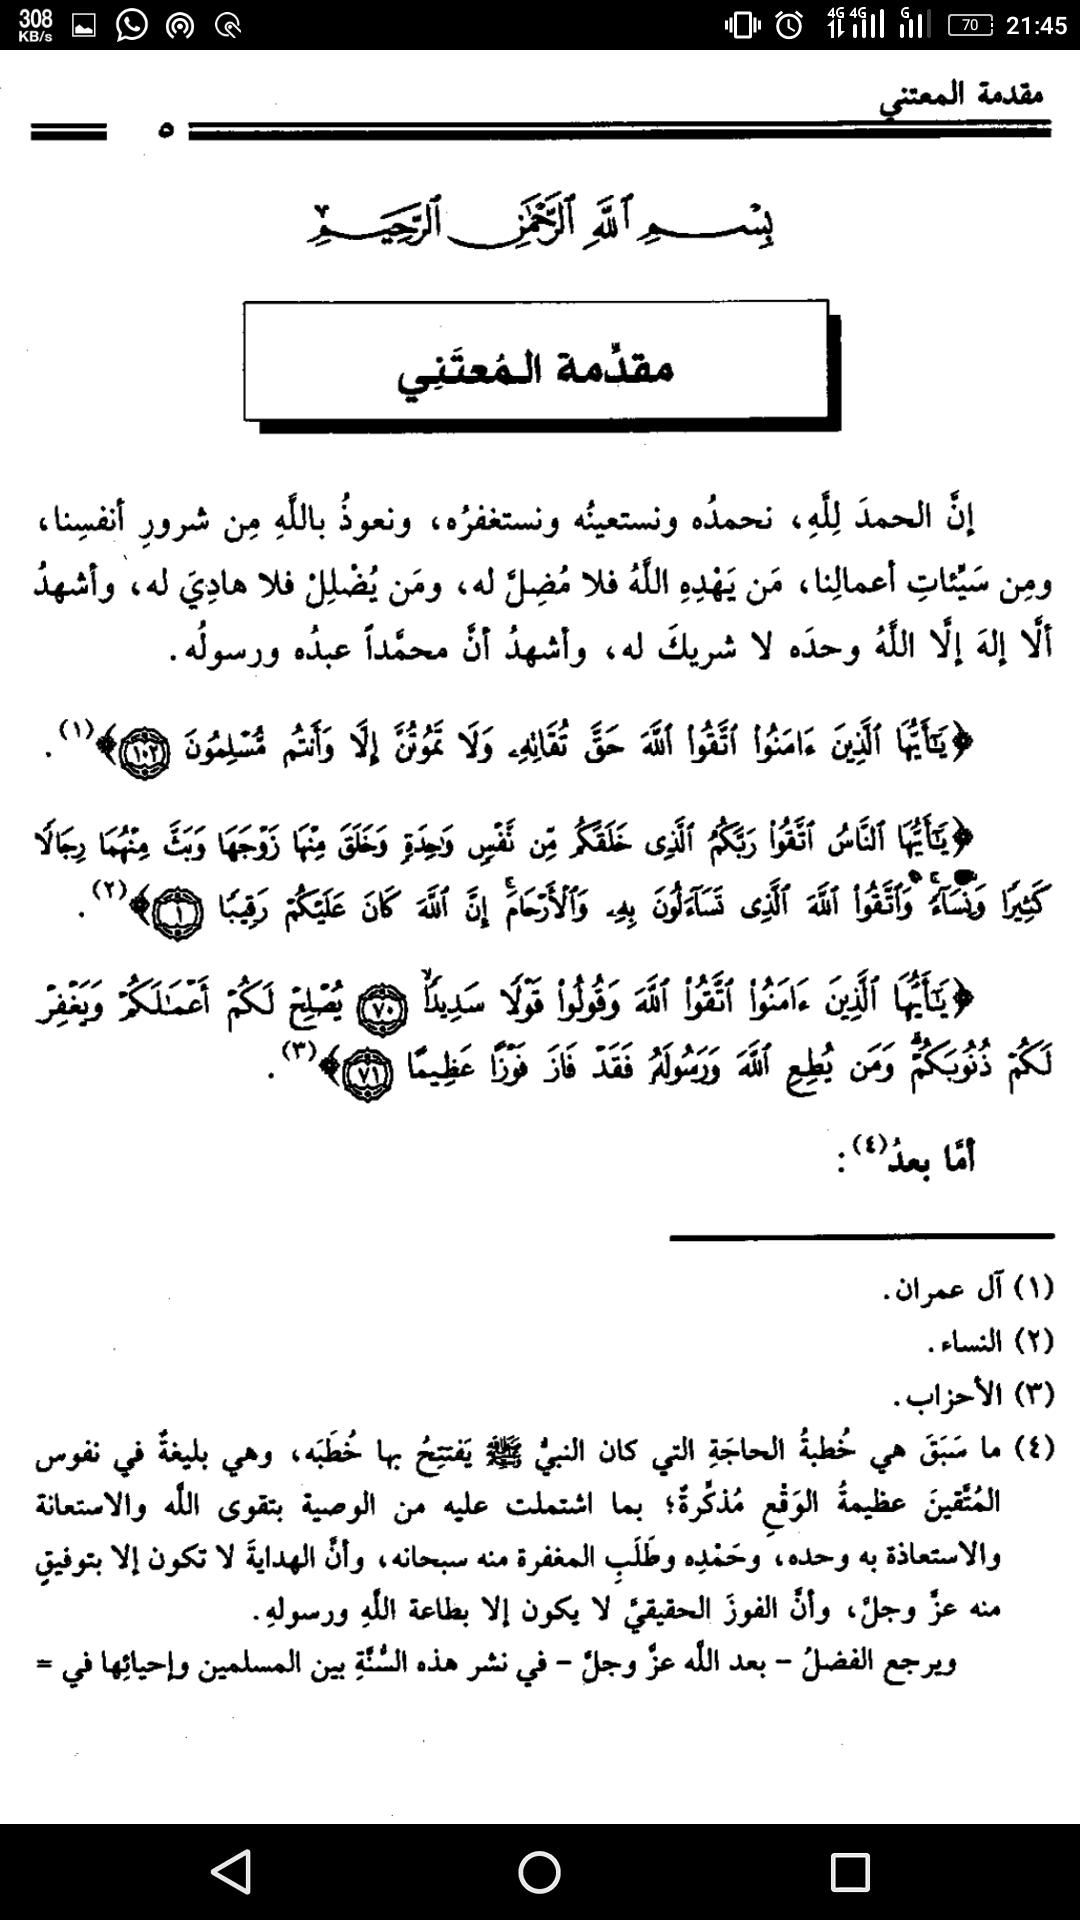 308
KB/s
4G 4G G 70 21:45
مقدمة المعتني
٥
بِسْمِ ٱللَّهِ ٱلرَّحْمَٰنِ ٱلرَّحِيمِ
مقدِّمة المُعتَنِي
إنَّ الحمدَ لِلَّهِ، نحمدُه ونستعينُه ونستغفرُه، ونعوذُ باللَّهِ مِن شرورِ أنفسِنا،
ومِن سَيِّئاتِ أعمالِنا، مَن يَهْدِهِ اللَّهُ فلا مُضِلَّ له، ومَن يُضْلِلْ فلا هادِيَ له، وأشهدُ
ألَّا إلهَ إلَّا اللَّهُ وحدَه لا شريكَ له، وأشهدُ أنَّ محمَّداً عبدُه ورسولُه.
﴿يَٰٓأَيُّهَا ٱلَّذِينَ ءَامَنُوا۟ ٱتَّقُوا۟ ٱللَّهَ حَقَّ تُقَاتِهِۦ وَلَا تَمُوتُنَّ إِلَّا وَأَنتُم مُّسْلِمُونَ ١٠٢﴾(١).
﴿يَٰٓأَيُّهَا ٱلنَّاسُ ٱتَّقُوا۟ رَبَّكُمُ ٱلَّذِى خَلَقَكُم مِّن نَّفْسٍ وَٰحِدَةٍ وَخَلَقَ مِنْهَا زَوْجَهَا وَبَثَّ مِنْهُمَا رِجَالًا
كَثِيرًا وَنِسَآءً وَٱتَّقُوا۟ ٱللَّهَ ٱلَّذِى تَسَآءَلُونَ بِهِۦ وَٱلْأَرْحَامَ إِنَّ ٱللَّهَ كَانَ عَلَيْكُمْ رَقِيبًا ١﴾(٢).
﴿يَٰٓأَيُّهَا ٱلَّذِينَ ءَامَنُوا۟ ٱتَّقُوا۟ ٱللَّهَ وَقُولُوا۟ قَوْلًا سَدِيدًا ٧٠ يُصْلِحْ لَكُمْ أَعْمَٰلَكُمْ وَيَغْفِرْ
لَكُمْ ذُنُوبَكُمْ وَمَن يُطِعِ ٱللَّهَ وَرَسُولَهُۥ فَقَدْ فَازَ فَوْزًا عَظِيمًا ٧١﴾(٣).
أمَّا بعدُ(٤):
(١) آل عمران.
(٢) النساء.
(٣) الأحزاب.
(٤) ما سَبَقَ هي خُطبةُ الحاجَةِ التي كان النبيُّ ﷺ يَفتتِحُ بها خُطَبَه، وهي بليغةٌ في نفوس
المُتَّقينَ عظيمةُ الوَقْعِ مُذكِّرةٌ؛ بما اشتملت عليه من الوصية بتقوى اللَّه والاستعانة
والاستعاذة به وحده، وحَمْدِه وطَلَبِ المغفرة منه سبحانه، وأنَّ الهدايةَ لا تكون إلا بتوفيقٍ
منه عزَّ وجلَّ، وأنَّ الفوزَ الحقيقيَّ لا يكون إلا بطاعة اللَّهِ ورسولهِ.
ويرجع الفضلُ - بعد اللَّه عزَّ وجلَّ - في نشر هذه السُّنَّةِ بين المسلمين وإحيائِها في =